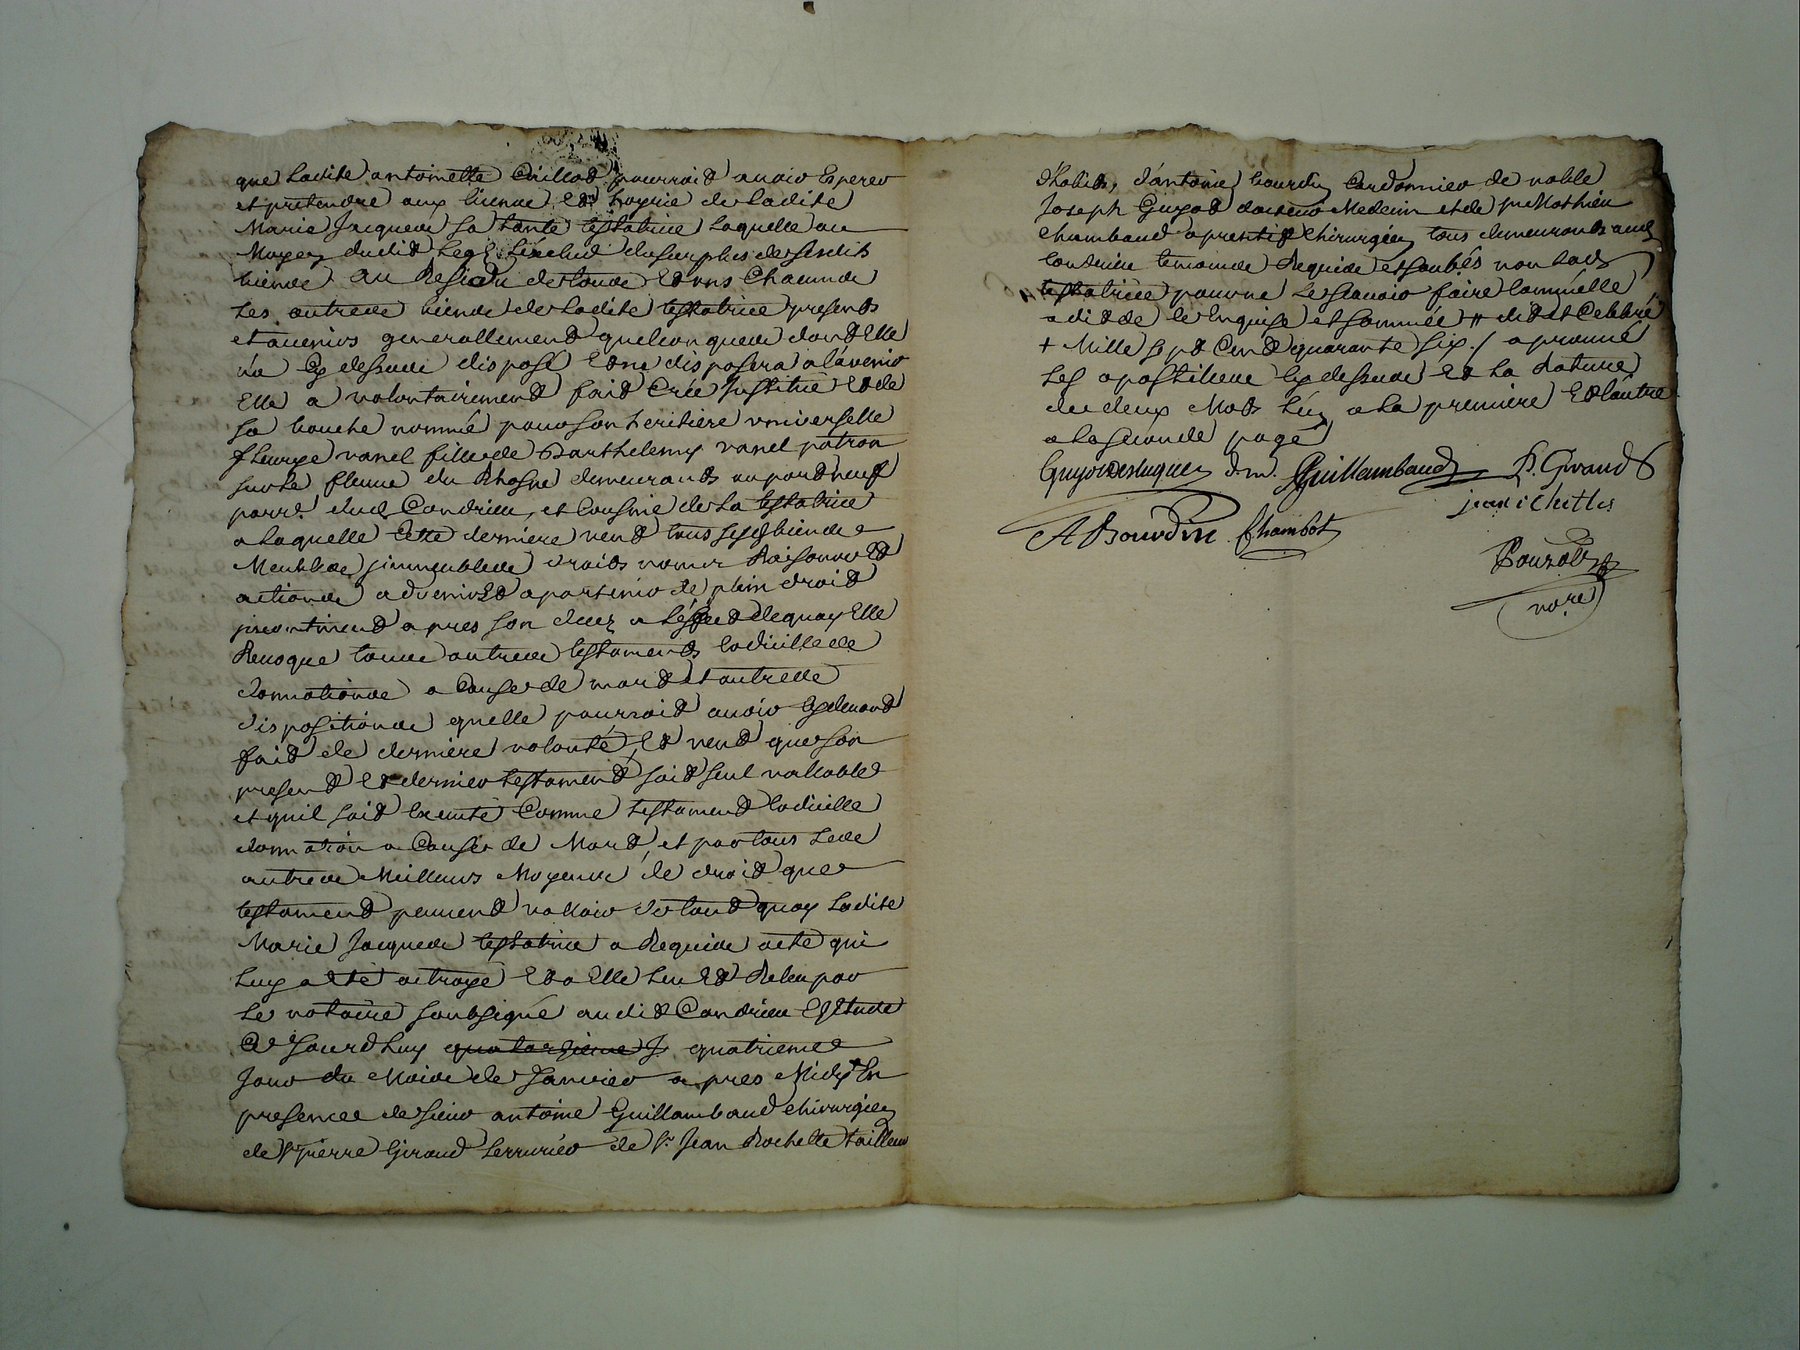 que Ladite antoinette Caillot pourroit avoir Esperer
et pretendre aux biens et hoyrie de Ladite
Marie Jacques sa tante testatrice Laquelle au
Moyen dudit Legs L'exclud du surplus de sesdits
biens Au Residu de tous Et uns Chacuns
Les autres biens de Ladite testatrice presents
et avenirs generallement quelconques dont Elle
n'a Cy dessus disposé Et ne disposera a l'avenir
Elle a volontairement fait Crée Jnstitué Et de
sa bouche nommé pour son heritiere vniverselle
fleurye vanel fille de Barthelemy vanel patron
sur Le fleuve du Rhosne demeurants au port neuf
parr.e dud Condrieu, et Cousine de La testatrice
a Laquelle Cette derniere veut tous sesds biens
Meubles jmmeubles droits noms Raisons Et
actions advenir Et apartenir de plein droit
jncontinent apres son decez a L'effet dequoy Elle
Revoque tous autres testaments Codicilles
donnations a Cause de mort et autres
dispositions quelle pourroit avoir Cy devant
fait de derniere volonté, Et veut que son
present Et dernier testament soit seul vallable
et qu'il soit Executé Comme testament Codicille
donnation a Cause de Mort, et par tous Les
autres Meilleurs Moyens de droit que
testament peuvent valloir de tout quoy Ladite
Marie Jacques testatrice a Requis acte qui
Luy a eté octroyé Et a Elle Leu Et Releu par
Le notaire soubsigné audit Condrieu Estude
Ce Jourd'huy quatorzieme J. quatrieme
Jour du Mois de Janvier apres Midy + En
presence de sieur antoine Guillambaud chirurgien
de Sr pierre Giraud serrurier de Sr Jean Rochette tailleur
d'habits, d'antoine bourdin Cordonnier de noble
Joseph Guyot docteur Medecin et de Sr Mathieu
Chambaud aprentif Chirurgien tous demeurants aud
Condrieu temoins Requis et soubsés non Lad
testatrice pour ne Le scavoir faire comme elle
a dit de ce Enquise et sommée # dit et Celebré
+ Mille sept Cent quarante six ./ aprouvé
Les apostilles Cy dessus Et La Rature
de deux Mots L'un a La premiere Et L'autre
a La seconde page
Guyot deslugues d.m. Guillambaud P. Giraud
jean rchettes
A Bourdin Chambot
Pouzols
no.re